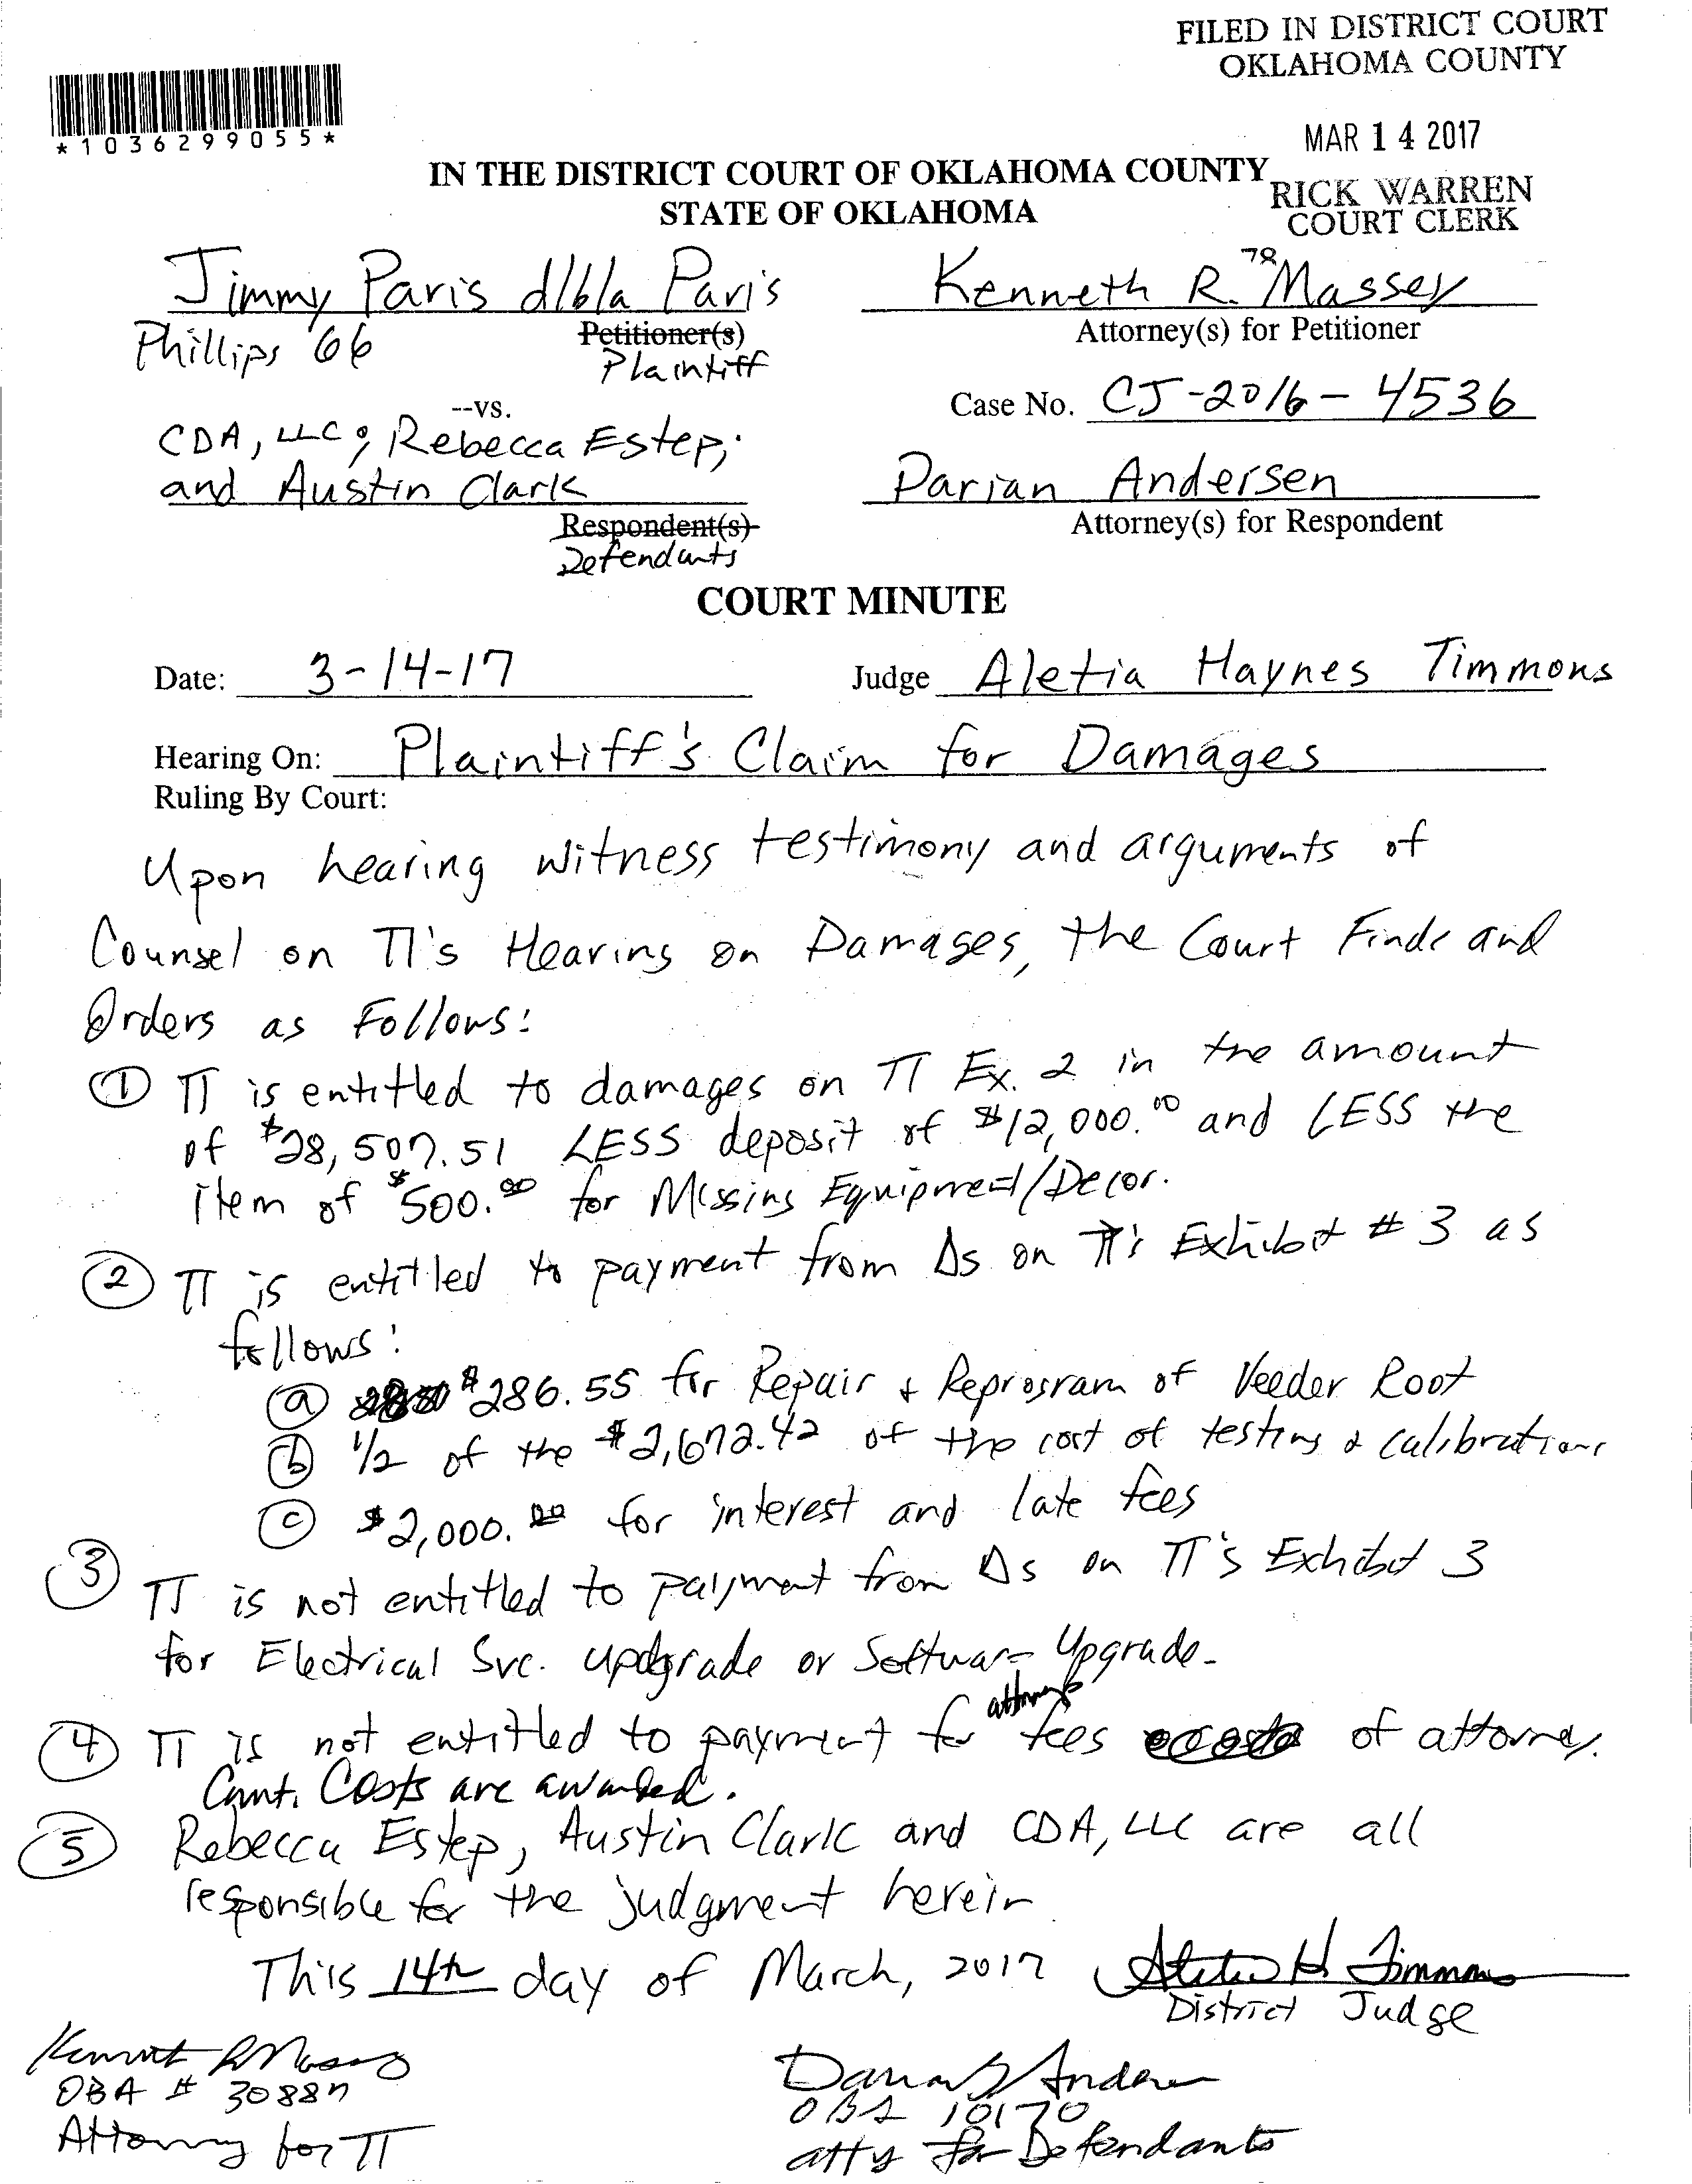 FILED IN DISTRICT COURT
OKLAHOMA COUNTY
MAR 14 2017
RICK WARREN
COURT CLERK
78
*1036299055*
IN THE DISTRICT COURT OF OKLAHOMA COUNTY
STATE OF OKLAHOMA
Jimmy Paris d/b/a Paris
Phillips 66
Petitioner(s)
Plaintiff
Kenneth R. Massey
Attorney(s) for Petitioner
--vs.
Case No. CJ-2016-4536
CDA, LLC; Rebecca Estep;
and Austin Clark
Respondent(s)
Defendants
Darian Andersen
Attorney(s) for Respondent
COURT MINUTE
Date: 3-14-17
Judge Aletia Haynes Timmons
Hearing On: Plaintiff's Claim for Damages
Ruling By Court:
Upon hearing witness testimony and arguments of
Counsel on Π's Hearing on Damages, the Court Finds and
Orders as Follows:
① Π is entitled to damages on Π Ex. 2 in the amount
of $28,507.51 LESS deposit of $12,000.00 and LESS the
item of $500.00 for Missing Equipment/Decor.
② Π is entitled to payment from Δs on Π's Exhibit # 3 as
follows:
ⓐ $286.55 for Repair & Reprogram of Veeder Root
ⓑ 1/2 of the $2,672.42 of the cost of testing & calibrations
ⓒ $2,000.00 for interest and late fees
③ Π is not entitled to payment from Δs on Π's Exhibit 3
for Electrical Svc. upgrade or Software Upgrade.
④ Π is not entitled to payment for attorneys fees of attorney.
Court Costs are awarded.
⑤ Rebecca Estep, Austin Clark and CDA, LLC are all
responsible for the judgment herein
This 14th day of March, 2017 Aletia H Timmons
District Judge
Kenneth R Massey
OBA # 30887
Attorney for Π
Andersen
OBA 10170
atty for Defendants